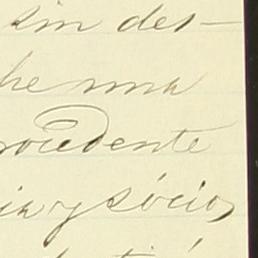 sin des-
he una
rocedente
in y sócios